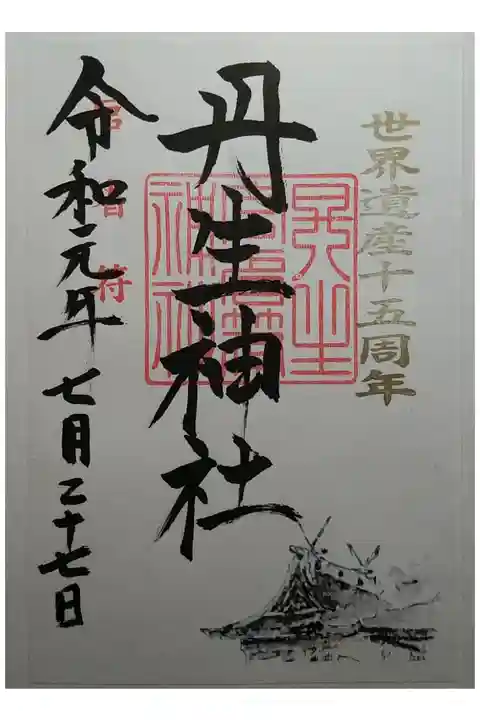 世界遺産十五周年
丹生神社
令和元年七月二十七日